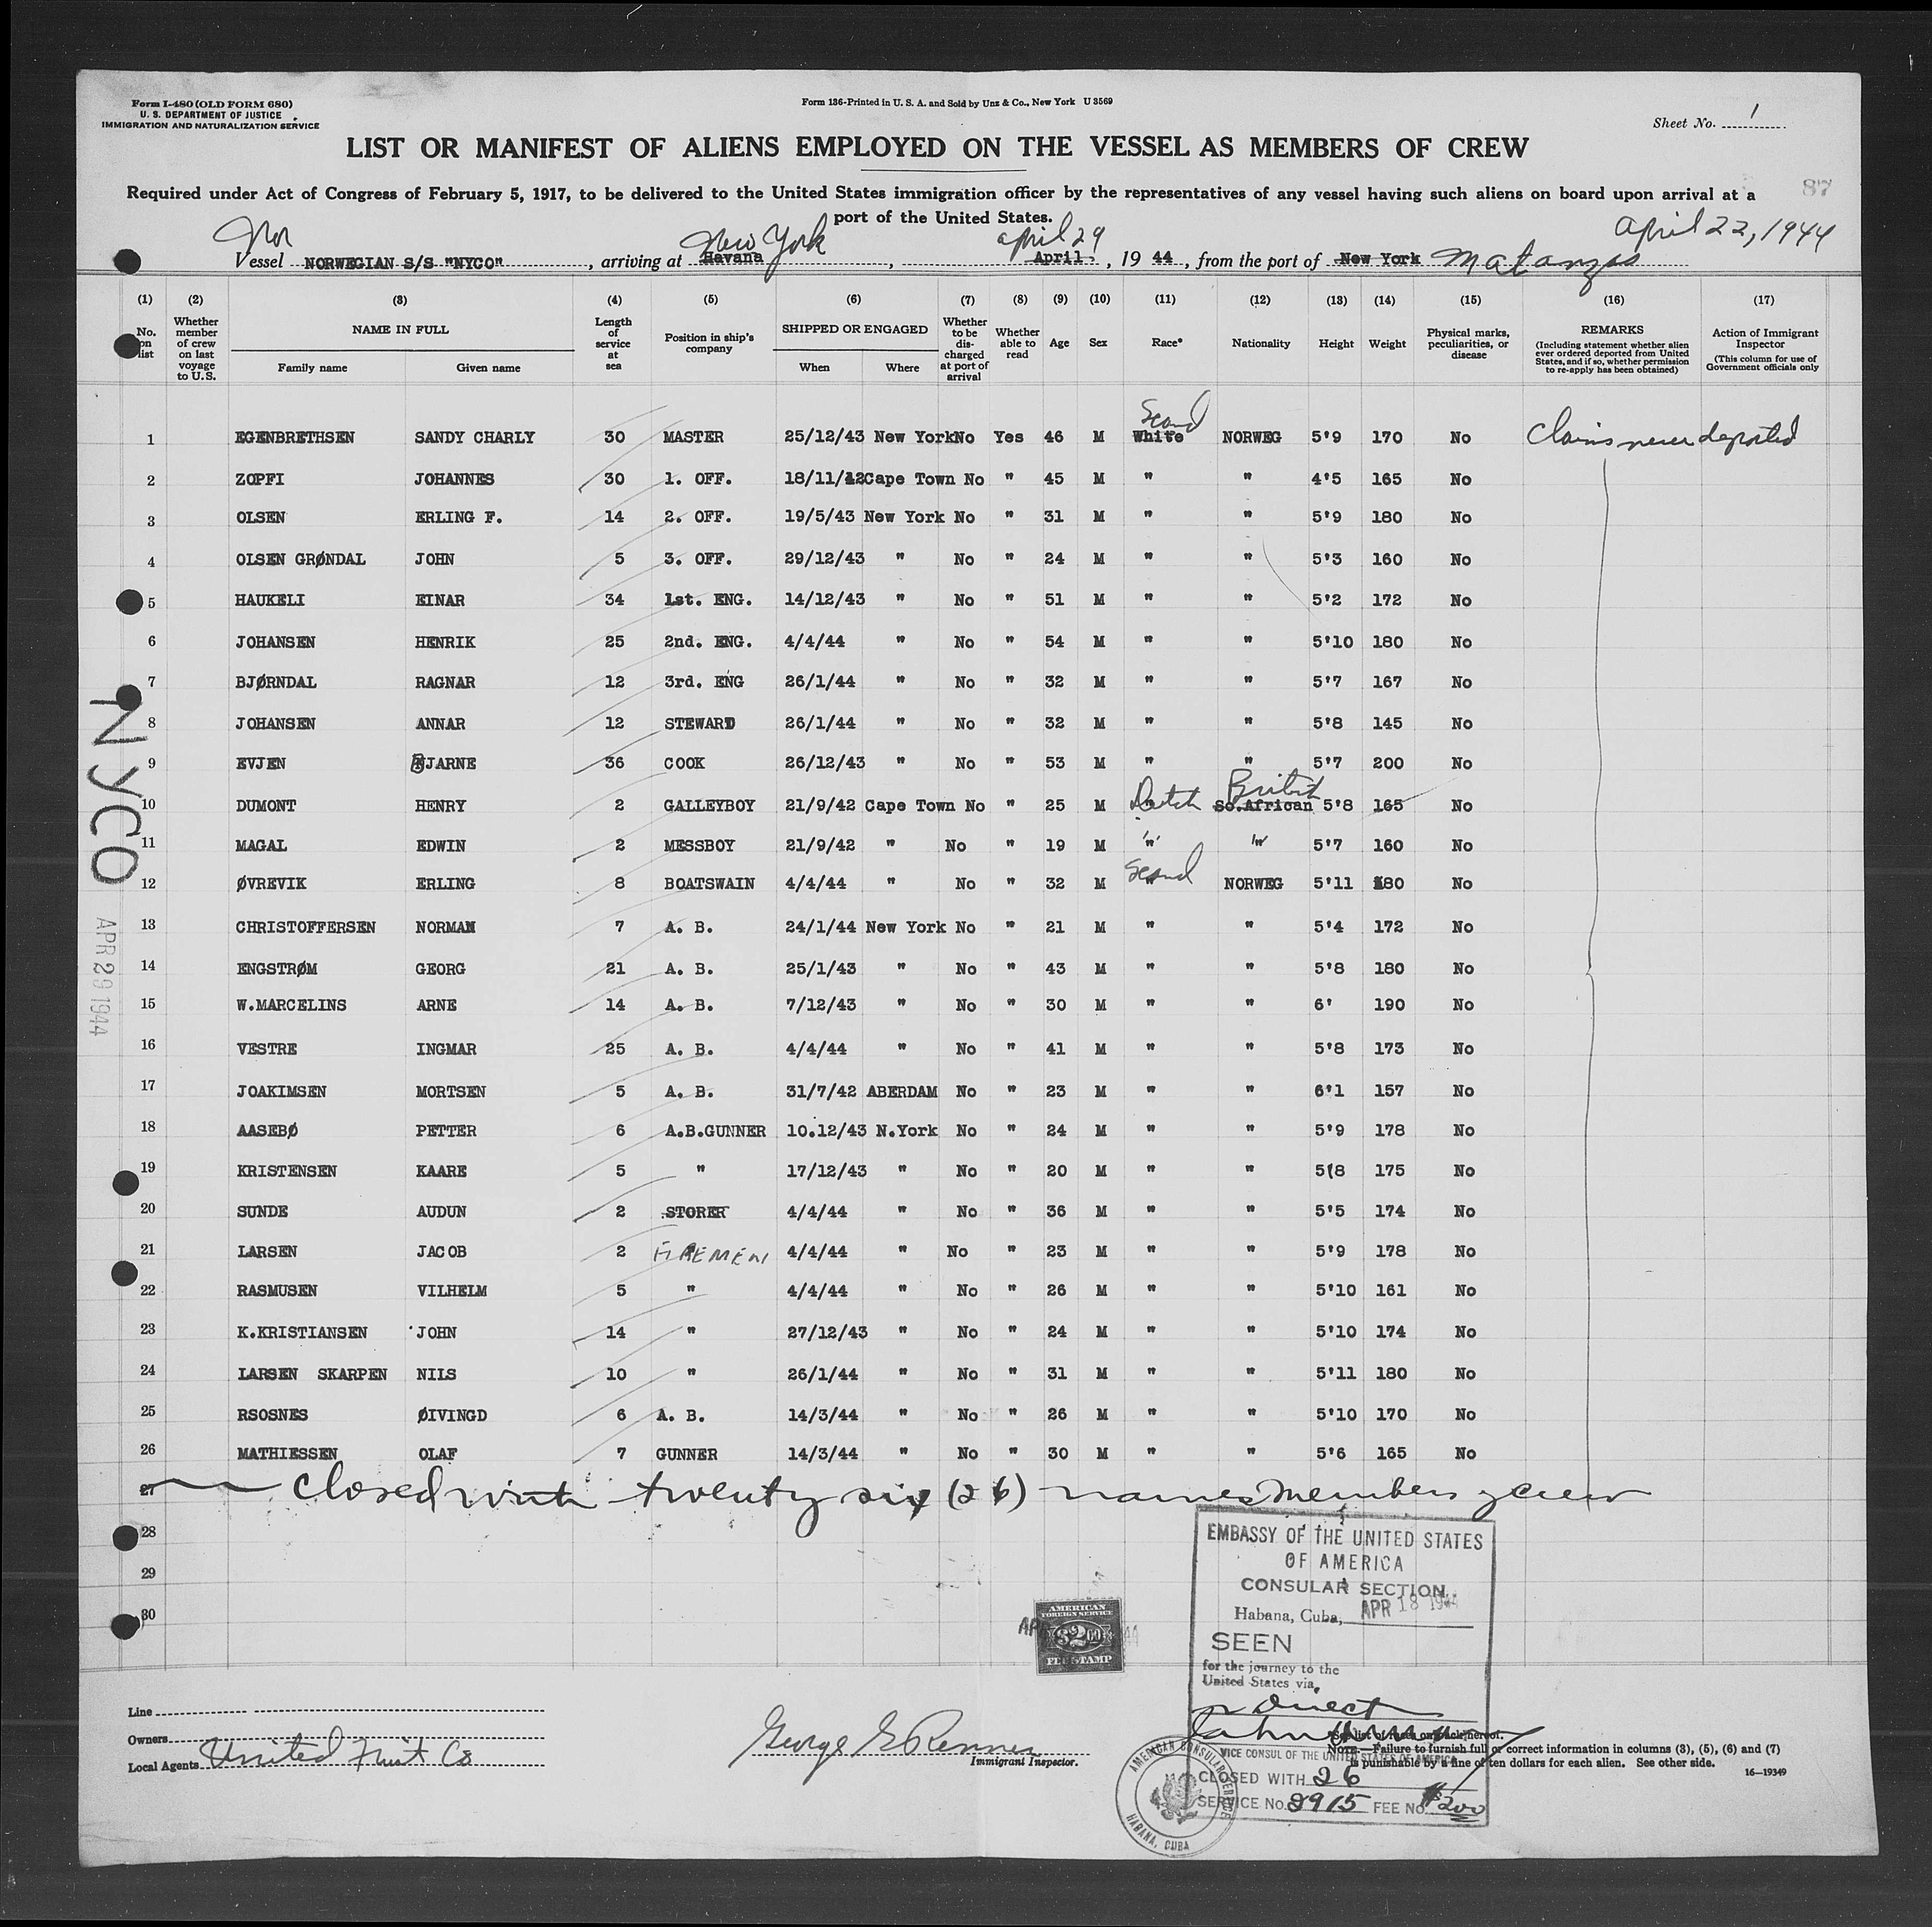 Form I-480 (OLD FORM 680)
U. S. DEPARTMENT OF JUSTICE
IMMIGRATION AND NATURALIZATION SERVICE
Form 136-Printed in U. S. A. and Sold by Unz & Co., New York U 3569
Sheet No. 1
LIST OR MANIFEST OF ALIENS EMPLOYED ON THE VESSEL AS MEMBERS OF CREW
Required under Act of Congress of February 5, 1917, to be delivered to the United States immigration officer by the representatives of any vessel having such aliens on board upon arrival at a
port of the United States.
87
Nor New York april 29 april 22, 1944
Vessel NORWEGIAN S/S "NYCO", arriving at Havana, April, 19 44, from the port of New York Matanzas
(1) (2) (3) (4) (5) (6) (7) (8) (9) (10) (11) (12) (13) (14) (15) (16) (17)
No. on list
Whether member of crew on last voyage to U.S.
NAME IN FULL
Family name Given name
Length of service at sea
Position in ship's company
SHIPPED OR ENGAGED
When Where
Whether to be discharged at port of arrival
Whether able to read
Age
Sex
Race*
Nationality
Height
Weight
Physical marks, peculiarities, or disease
REMARKS
(Including statement whether alien ever ordered deported from United States, and if so, whether permission to re-apply has been obtained)
Action of Immigrant Inspector
(This column for use of Government officials only
Scand
1 EGENBRETHSEN SANDY CHARLY 30 MASTER 25/12/43 New York No Yes 46 M White NORWEG 5'9 170 No Claims never deported
2 ZOPFI JOHANNES 30 1. OFF. 18/11/42 Cape Town No " 45 M " " 4'5 165 No
3 OLSEN ERLING F. 14 2. OFF. 19/5/43 New York No " 31 M " " 5'9 180 No
4 OLSEN GRØNDAL JOHN 5 3. OFF. 29/12/43 " No " 24 M " " 5'3 160 No
5 HAUKELI EINAR 34 1st. ENG. 14/12/43 " No " 51 M " " 5'2 172 No
6 JOHANSEN HENRIK 25 2nd. ENG. 4/4/44 " No " 54 M " " 5'10 180 No
7 BJØRNDAL RAGNAR 12 3rd. ENG 26/1/44 " No " 32 M " " 5'7 167 No
8 JOHANSEN ANNAR 12 STEWARD 26/1/44 " No " 32 M " " 5'8 145 No
9 EVJEN BJARNE 36 COOK 26/12/43 " No " 53 M " " 5'7 200 No
British
10 DUMONT HENRY 2 GALLEYBOY 21/9/42 Cape Town No " 25 M Dutch So.African 5'8 165 No
11 MAGAL EDWIN 2 MESSBOY 21/9/42 " No " 19 M " " 5'7 160 No
12 ØVREVIK ERLING 8 BOATSWAIN 4/4/44 " No " 32 M Scand NORWEG 5'11 180 No
13 CHRISTOFFERSEN NORMAN 7 A. B. 24/1/44 New York No " 21 M " " 5'4 172 No
14 ENGSTRØM GEORG 21 A. B. 25/1/43 " No " 43 M " " 5'8 180 No
15 W.MARCELINS ARNE 14 A. B. 7/12/43 " No " 30 M " " 6' 190 No
16 VESTRE INGMAR 25 A. B. 4/4/44 " No " 41 M " " 5'8 173 No
17 JOAKIMSEN MORTSEN 5 A. B. 31/7/42 ABERDAM No " 23 M " " 6'1 157 No
18 AASEBØ PETTER 6 A.B.GUNNER 10.12/43 N.York No " 24 M " " 5'9 178 No
19 KRISTENSEN KAARE 5 " 17/12/43 " No " 20 M " " 5(8 175 No
20 SUNDE AUDUN 2 STORER 4/4/44 " No " 36 M " " 5'5 174 No
21 LARSEN JACOB 2 FIREMEN 4/4/44 " No " 23 M " " 5'9 178 No
22 RASMUSEN VILHELM 5 " 4/4/44 " No " 26 M " " 5'10 161 No
23 K.KRISTIANSEN JOHN 14 " 27/12/43 " No " 24 M " " 5'10 174 No
24 LARSEN SKARPEN NILS 10 " 26/1/44 " No " 31 M " " 5'11 180 No
25 RSOSNES ØIVINGD 6 A. B. 14/3/44 " No " 26 M " " 5'10 170 No
26 MATHIESSEN OLAF 7 GUNNER 14/3/44 " No " 30 M " " 5'6 165 No
27 closed with twenty six (26) names members of crew
28
29
30
NYCO
APR 29 1944
EMBASSY OF THE UNITED STATES
OF AMERICA
CONSULAR SECTION
Habana, Cuba, APR 18 1944
SEEN
for the journey to the
United States via
Direct
VICE CONSUL OF THE UNITED STATES OF AMERICA
CLOSED WITH 26
SERVICE No. 2915 FEE No. $2.00
AMERICAN
FOREIGN SERVICE
$2.00
FEE STAMP
AMERICAN CONSULAR SERVICE
HABANA, CUBA
Line
Owners
Local Agents United Fruit Co
George E Renner
Immigrant Inspector.
*See list of races on back hereof.
NOTE.—Failure to furnish full or correct information in columns (3), (5), (6) and (7)
is punishable by a fine of ten dollars for each alien. See other side.
16—19349